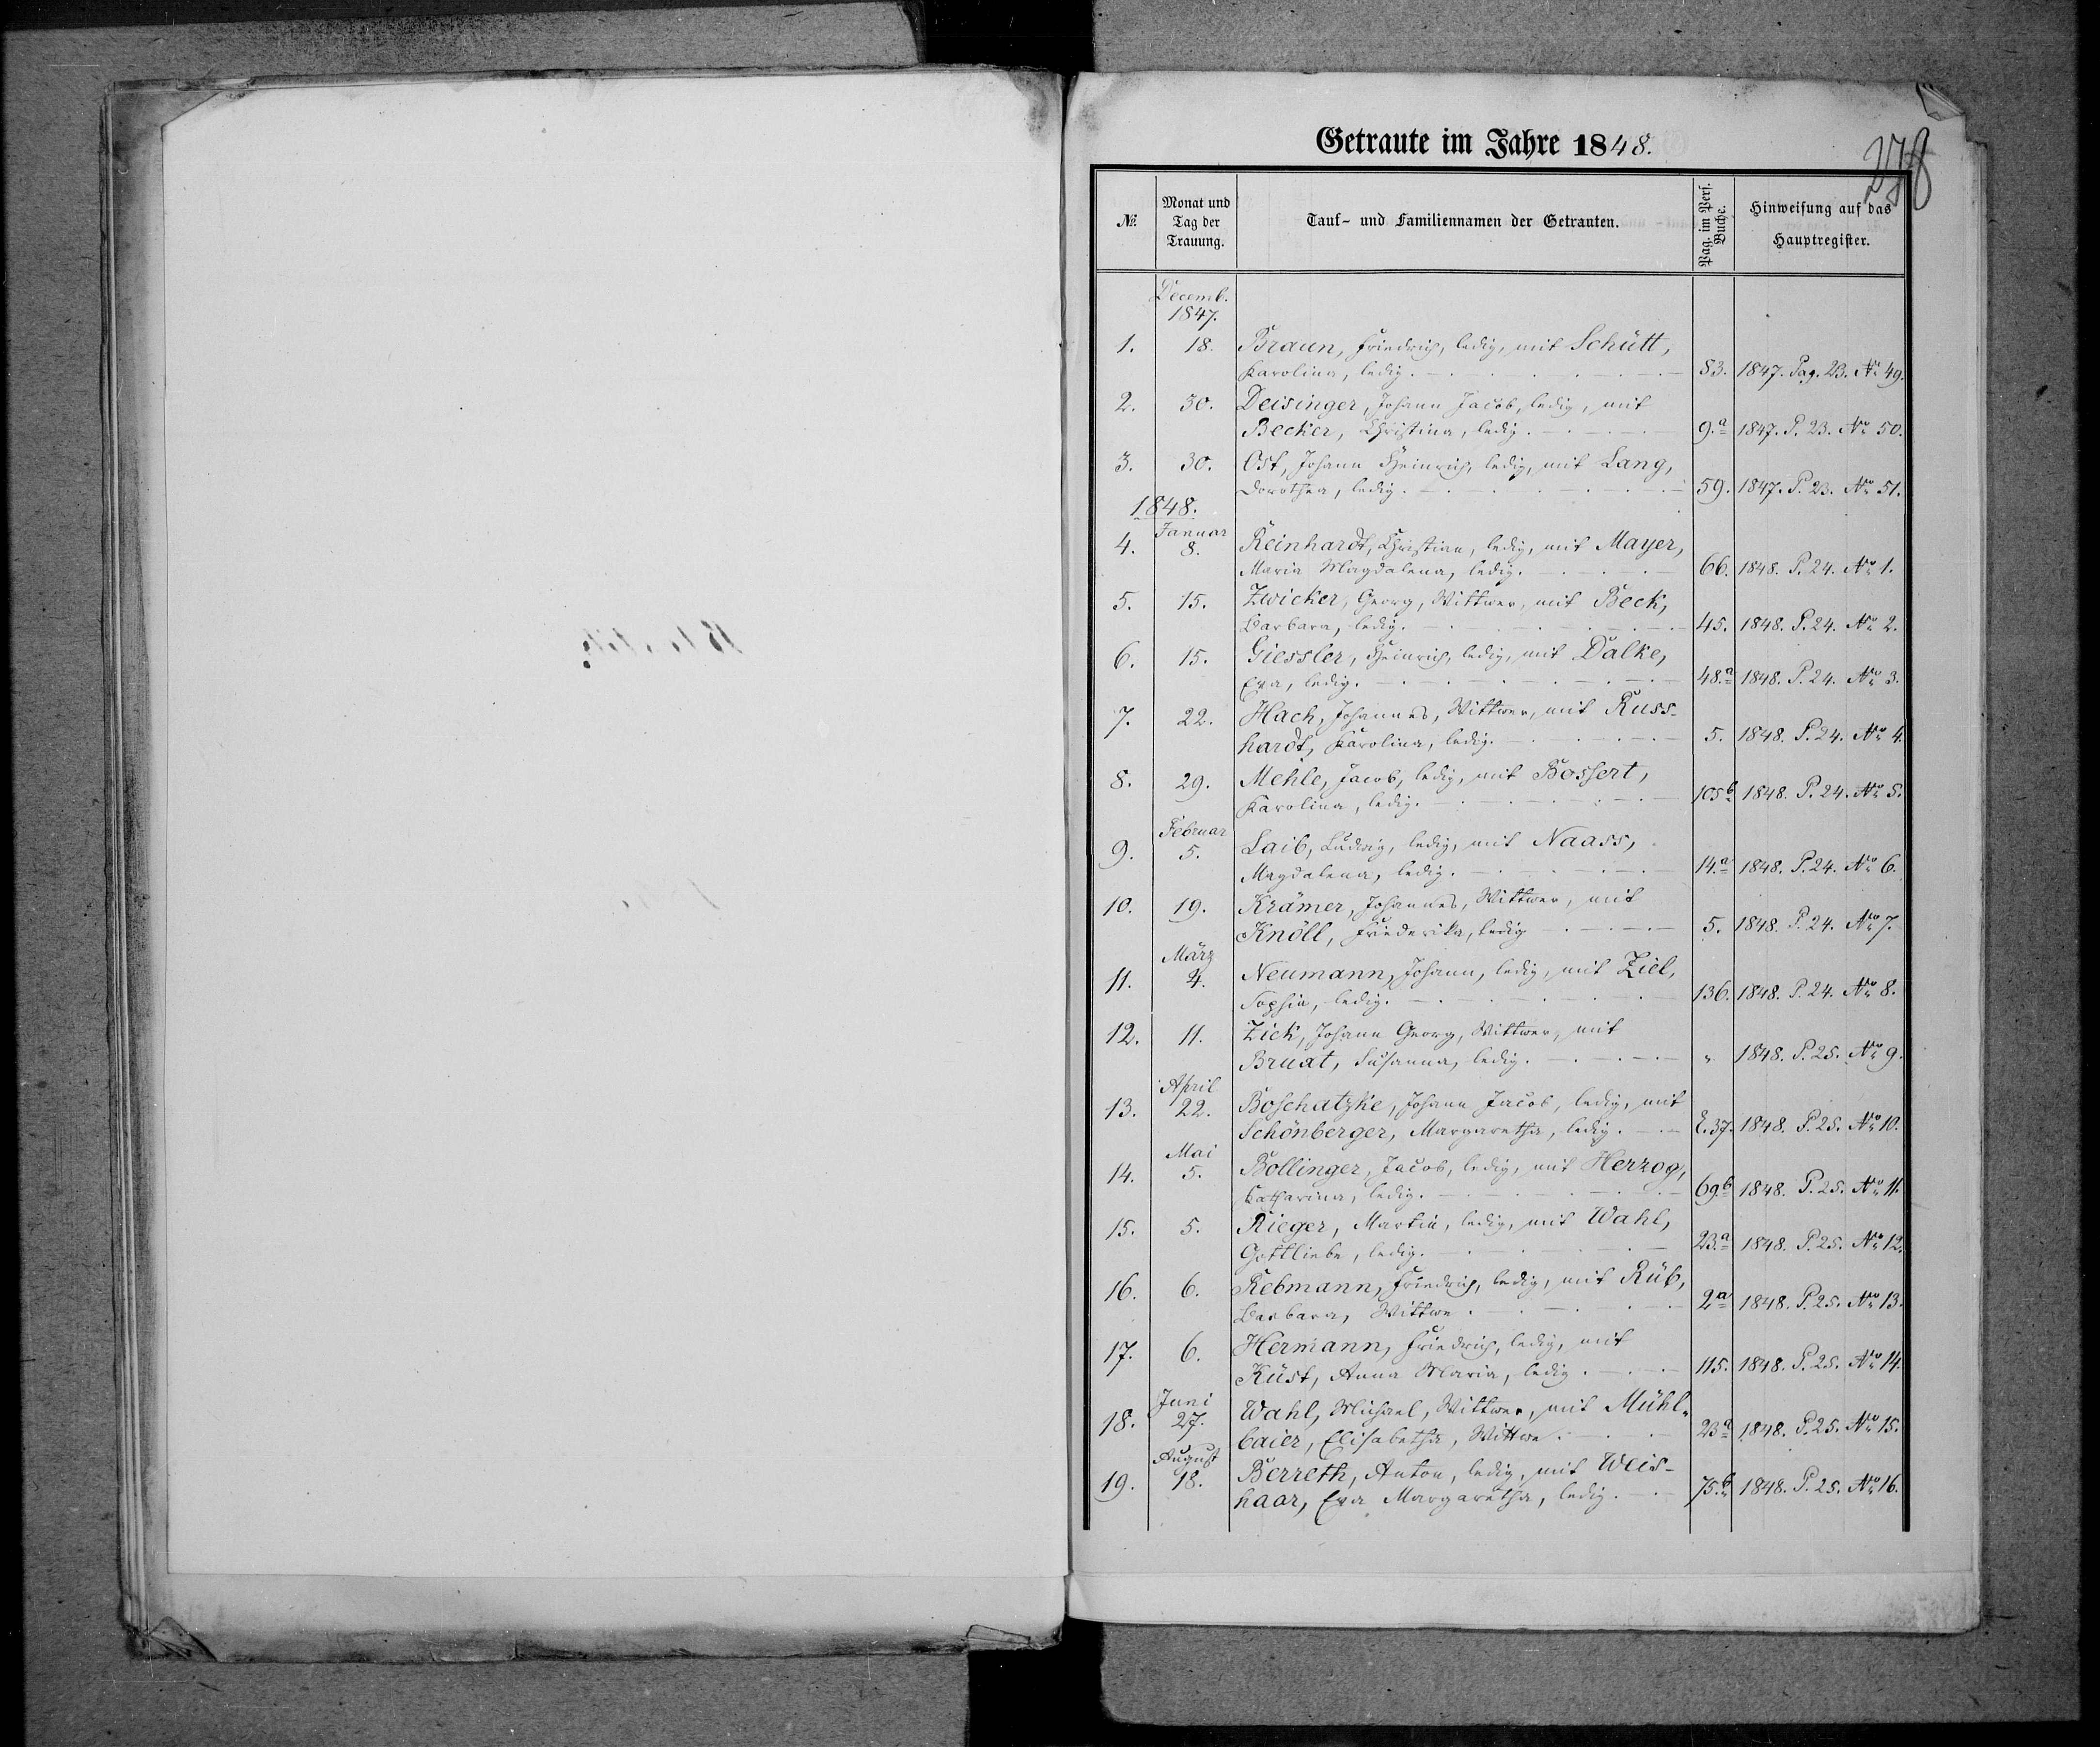 Getraute im Jahre 1848.
278
№. Monat und Tag der Trauung. Tauf- und Familiennamen der Getrauten. Pag. im Pers. Buche. Hinweisung auf das Hauptregister.
Decemb.
1847.
1. 18. Braun, Friedrich, ledig, mit Schütt,
Karolina, ledig. 83. 1847. Pag. 23. No 49.
2. 30. Deisinger, Johann Jacob, ledig, mit
Becker, Christina, ledig. 9.a 1847. P. 23. No 50.
3. 30. Ost, Johann Heinrich, ledig, mit Lang,
Dorothea, ledig. 59. 1847. P. 23. No 51.
1848.
Januar
4. 8. Reinhardt, Christian, ledig, mit Mayer,
Maria Magdalena, ledig. 66. 1848. P. 24. No 1.
5. 15. Zwicker, Georg, Wittwer, mit Beck,
Barbara, ledig. 45. 1848. P. 24. No 2.
6. 15. Giessler, Heinrich, ledig, mit Dalke,
Eva, ledig. 48.a 1848. P. 24. No 3.
7. 22. Hach, Johannes, Wittwer, mit Russ-
hardt, Karolina, ledig. 5. 1848. P. 24. No 4.
8. 29. Mehle, Jacob, ledig, mit Bossert,
Karolina, ledig. 105b 1848. P. 24. No 5.
Februar
9. 5. Laib, Ludwig, ledig, mit Naass,
Magdalena, ledig. 14.a 1848. P. 24. No 6.
10. 19. Krämer, Johannes, Wittwer, mit
Knöll, Friederika, ledig 5. 1848. P. 24. No 7.
März
11. 4. Neumann, Johann, ledig, mit Ziel,
Sophia, ledig. 136. 1848. P. 24. No 8.
12. 11. Zick, Johann Georg, Wittwer, mit
Bruat, Susanna, ledig. " 1848. P. 25. No 9.
April
13. 22. Boschatzke, Johann Jacob, ledig, mit
Schönberger, Margaretha, ledig. E. 37. 1848. P. 25. No 10.
Mai
14. 5. Bollinger, Jacob, ledig, mit Herzog,
Katharina, ledig. 69b 1848. P. 25. No 11.
15. 5. Rieger, Martin, ledig, mit Wahl,
Gottliebe, ledig. 23.a 1848. P. 25. No 12.
16. 6. Rebmann, Friedrich, ledig, mit Rüb,
Barbara, Wittwe. 2a 1848. P. 25. No 13.
17. 6. Hermann, Friedrich, ledig, mit
Küst, Anna Maria, ledig. 115. 1848. P. 25. No 14.
Juni
18. 27. Wahl, Michael, Wittwer, mit Mühl-
baier, Elisabetha, Wittwe. 23a 1848. P. 25. No 15.
August
19. 18. Berreth, Anton, ledig, mit Weis-
haar, Eva Margaretha, ledig. 75.b 1848. P. 25. No 16.